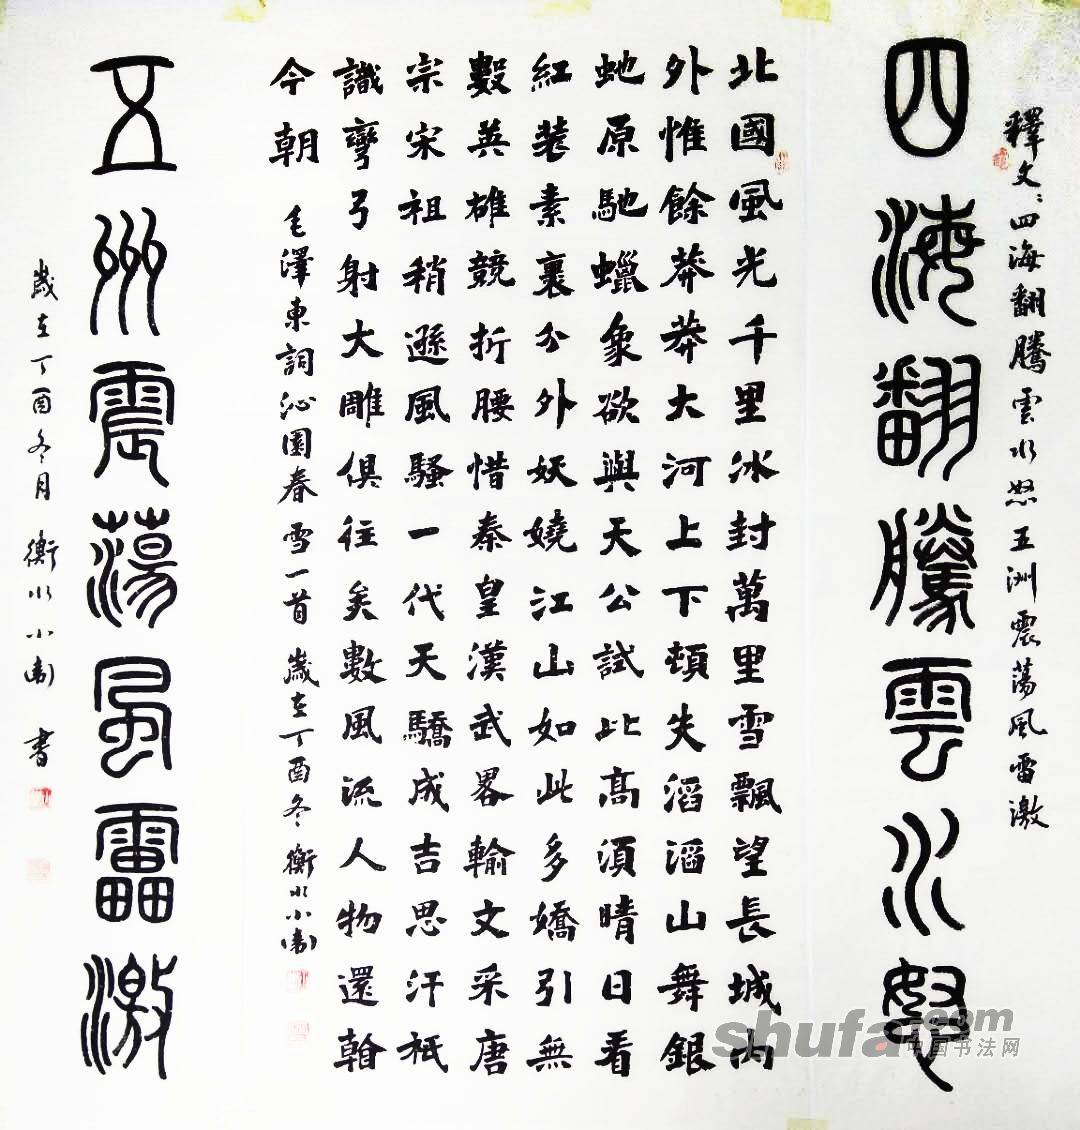 釋文:四海翻騰雲水怒五洲震蕩風雷激
四海翻騰雲水怒
北國風光千里冰封萬里雪飄望長城内
外惟餘莽莽大河上下頓失滔滔山舞銀
虵原馳蠟象欲與天公試比高須晴日看
紅裝素裹分外妖嬈江山如此多嬌引無
數英雄競折腰惜秦皇漢武畧輸文采唐
宗宋祖稍遜風騷一代天驕成吉思汗衹
識彎弓射大雕俱往矣數風流人物還看
今朝 毛澤東詞沁園春雪一首 歲在丁酉冬 衡水小衛
五州震蕩風靁激
歲在丁酉冬月 衡水小衛 書
shufa.com
中国书法网